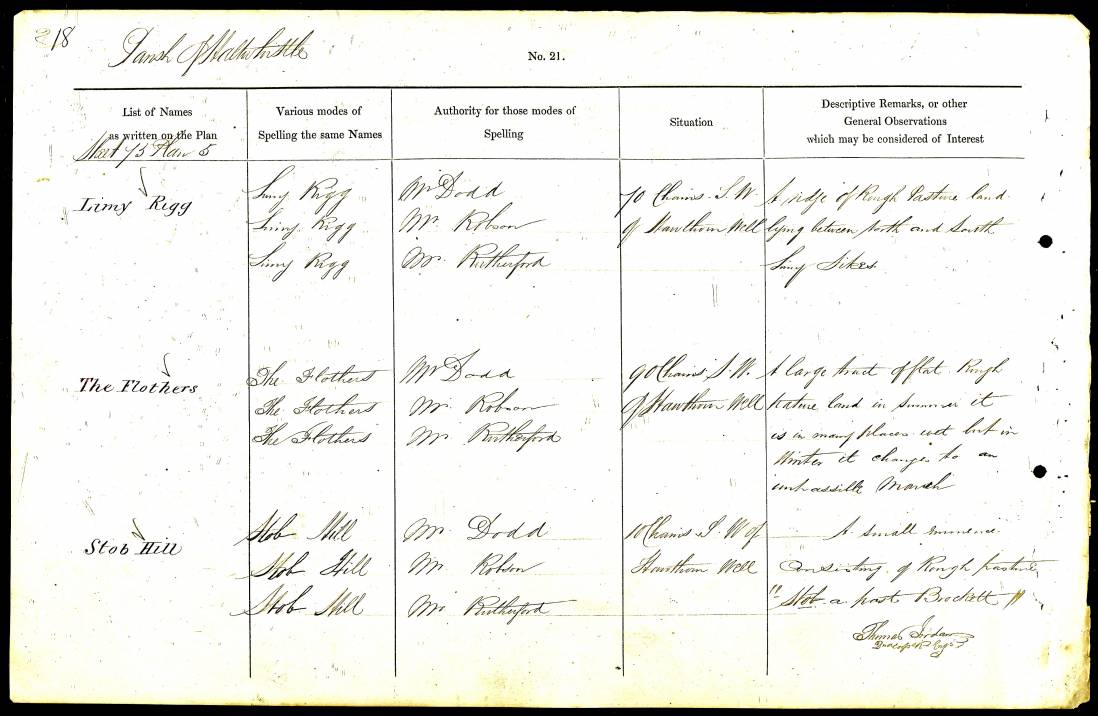 218
Parish of Haltwhistle
No. 21.
List of Names
as written on the Plan
Various modes of
Spelling the same Names
Authority for those modes of
Spelling
Situation
Descriptive Remarks, or other
General Observations
which may be considered of Interest
Sheet 75 Plan 5
Limy Rigg
Limy Rigg
Mr Dodd
70 Chains S.W.
A ridge of Rough Pasture land
Limy Rigg
Mr. Robson
of Hawthorn Well
lying between North and South
Limy Rigg
Mr. Rutherford
Limy Sikes.
The Flothers
The Flothers
Mr Dodd
90 Chains S.W.
A large tract of flat Rough
The Flothers
Mr. Robson
of Hawthorn Well
Pasture land in summer it
The Flothers
Mr. Rutherford
is in many places wet but in
Winter it changes to an
impassible Marsh
Stob Hill
Stob Hill
Mr. Dodd
10 Chains S.W of
A small eminence
Stob Hill
Mr. Robson
Hawthorn Well
Consisting of Rough pasture
Stob Hill
Mr. Rutherford
"Stob a post Brockett"
Thomas Jordan